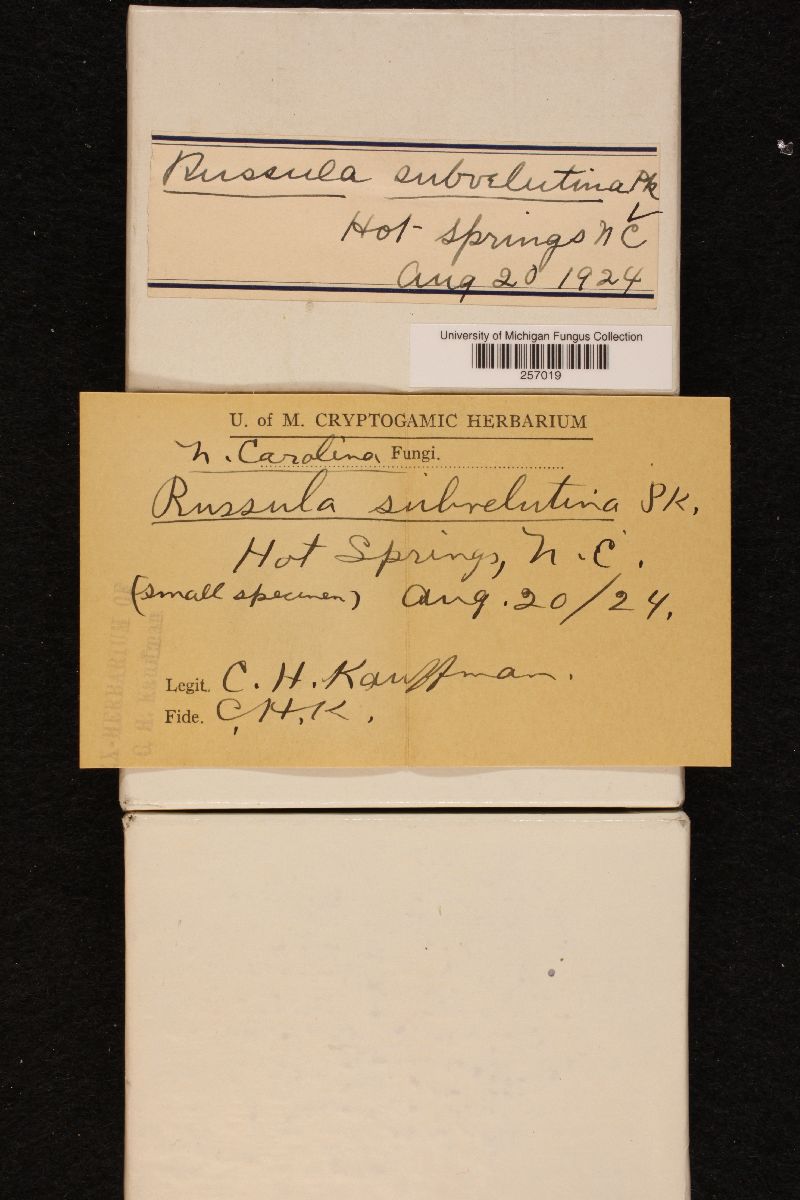 Russula subvelutina Pk
Hot Springs N C
Aug 20 1924
University of Michigan Fungus Collection
257019
U. of M. CRYPTOGAMIC HERBARIUM
N. Carolina Fungi.
Russula subvelutina Pk.
Hot Springs, N.C.
(small specimen) Aug. 20/24.
Legit. C. H. Kauffman.
Fide. C.H.K.
X-HERBARIUM OF
C. H. Kauffman